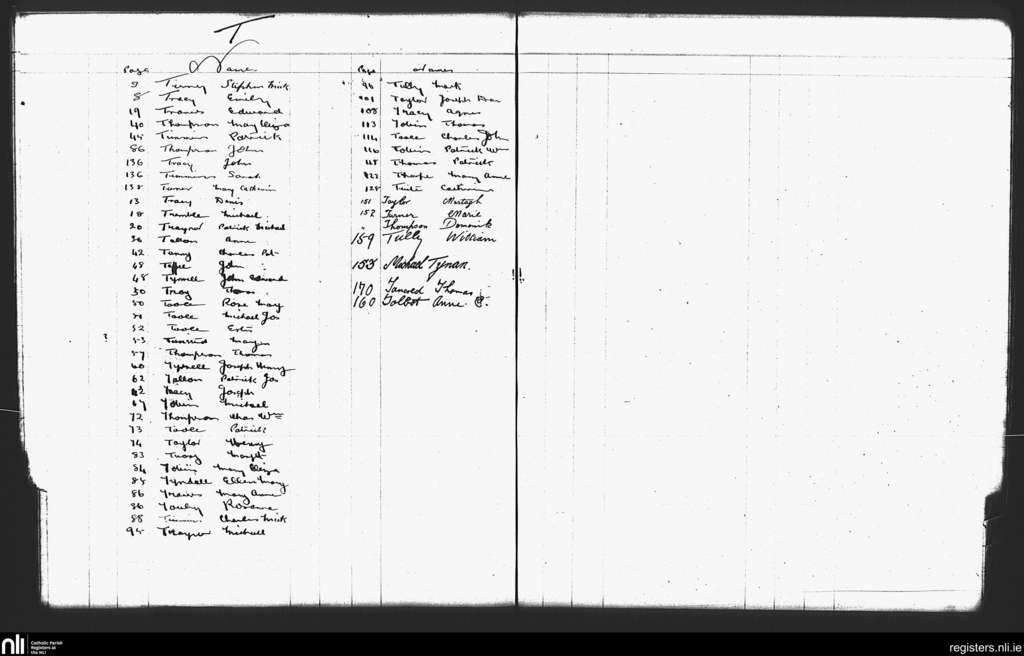 T
Page Name
9 Tierney Stephen Mick
8 Tracy Emily
19 Travers Edward
40 Thompson Mary Eliza
45 Timmins Patrick
86 Thompson John
136 Tracy John
136 Timmins Sarah
138 Turner May Catherin
13 Tracy Denis
18 Tremble Michael
20 Traynor Patrick Michael
36 Tallon Anne
42 Charles Pat
48 John
48 Tyrrell John Edward
50 Troy
50 Toole Rose Mary
Toole Michael Jos
52 Toole
53
57 Thompson Thomas
60 Tyrrell Joseph Henry
62 Tallon Patrick Jos
62 Tracy Joseph
67 Tobin Michael
72 Thompson Chas Wm
73 Toole Patrick
74 Taylor Henry
83
84 Tobin Mary Eliza
85 Tyndall Ellen Mary
86 Travers Mary Anne
86
88 Timmins Charles Mick
95 Traynor Michael
Page Names
96 Tilly Mark
101 Taylor Joseph
108 Tracy Agnes
113 Tobin Thomas
114 Toole Charles John
116 Tobin Patrick Wm
118 Thomas Patrick
122 Thorpe Mary Anne
128 Tuite Catherine
151 Taylor Murtagh
152 Turner Marie
" Thompson Dominick
159 Tully William
153 Michael Tynan.
170 Tancred Thomas
160 Tolbot Anne C.
nli
Catholic Parish
Registers at
the NLI
registers.nli.ie